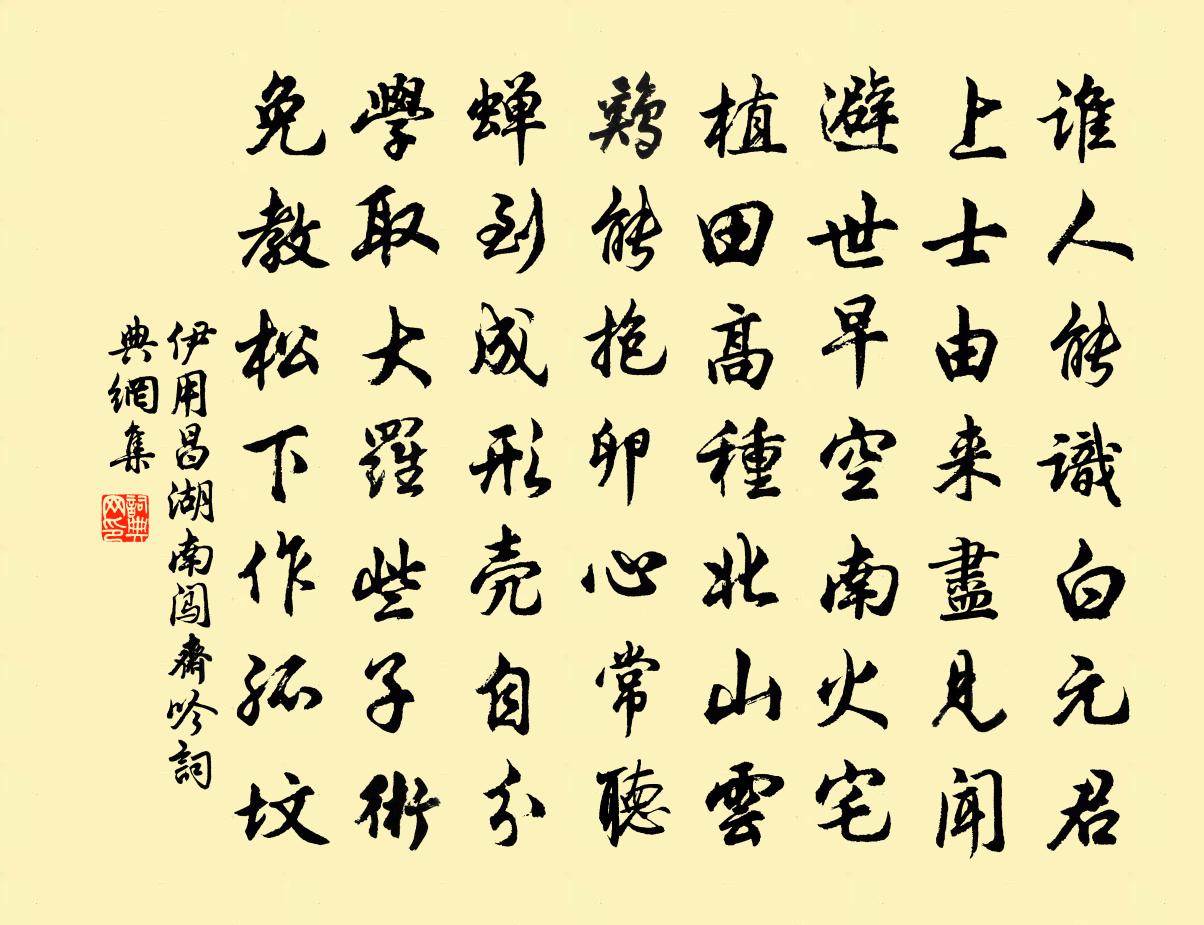 谁人能識白元君
上士由来盡見聞
避世早空南火宅
植田高種北山雲
鷄能抱卵心常聽
蝉到成形壳自分
學取大羅些子術
免教松下作孤坟
伊用昌湖南闯齋吟詞
典網集
詞典
网印